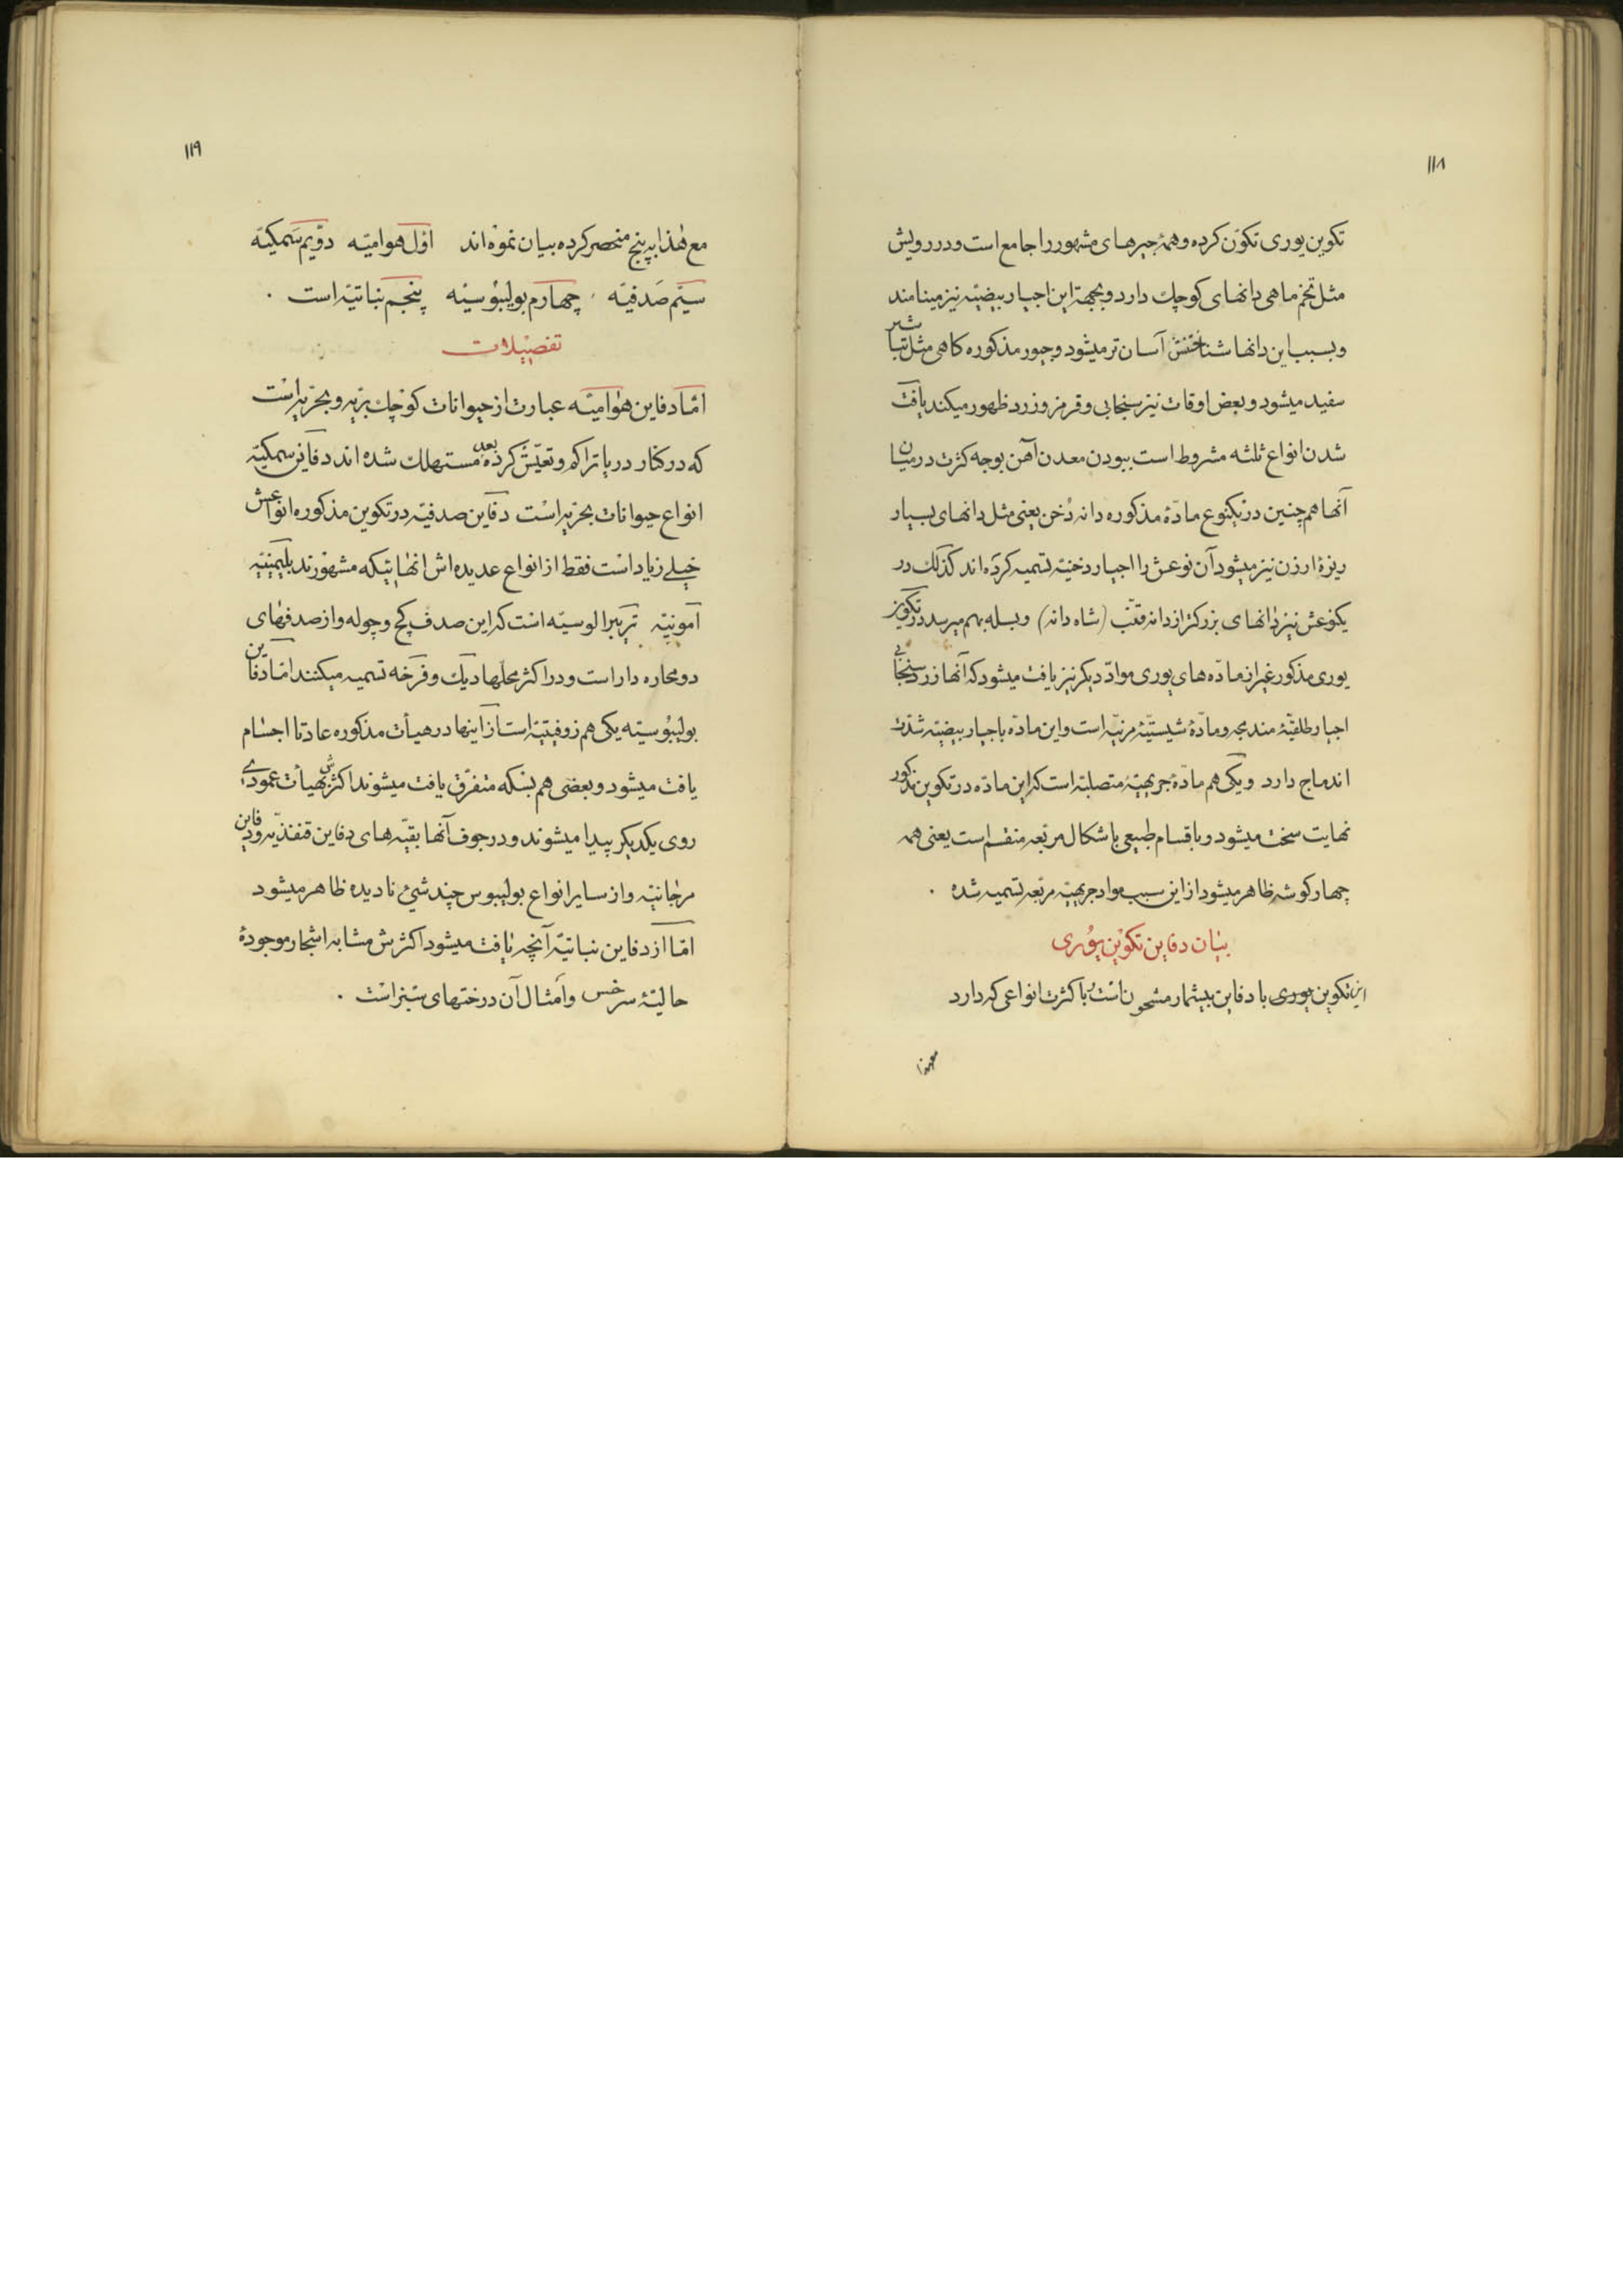 ۱۱۸
تکوین یوری تکوّن کرده و همهٔ جیرهای مشهور را جامع است و در رویش
مثل تخم ماهی دانهای کوچك دارد و بجهة این اجیار بیضیّه نیز مینامند
و بسبب این دانها شناختنش آسان تر میشود و جیور مذکوره کاهی مثل تباشیر
سفید میشود و بعض اوقات نیز سنجابی و قرمز و زرد ظهور میکند یافت
شدن انواع ثلثه مشروط است ببودن معدن آهن بوجه کثرت در میان
آنها همچنین در یکنوع مادّهٔ مذکوره دانه دُخن یعنی مثل دانهای بسیار
ریزهٔ ارزن نیز میشود آن نوعش را اجیار دخنیّه تسمیه کرده اند کذلك در
یکنوعش نیز دانهای بزرکتر از دانه قنّب (شاه دانه) و بسله بهم میرسد در تکوین
یوری مذکور غیر از مادّه های یوری موادّ دیکر نیز یافت میشود که آنها زرد سنجابی
اجیار طلقیّهٔ مندمجه و مادّهٔ شیستیّهٔ مرنیّه است و این مادّه با جیار بیضیّه شدّت
اندماج دارد و یکی هم مادّهٔ جریهیّهٔ متصلبّه است که این مادّه در تکوین مذکور
نهایت سخت میشود و باقسام طبیعی باشکال مربّعه منقسم است یعنی همه
چهار کوشه ظاهر میشود از این سبب مواد جریهیّه مربّعه تسمیه شده .
بیان دفاین تکوین یوُری
این تکوین یوری با دفاین بیشمار مشحون است و با کثرت انواعی که دارد
معهذا
۱۱۹
مع هٰذا به پنج منحصر کرده بیان نموده اند اوّل هوامیّه دوّیم سَمکیّه
سیّم صَدفیّه ، چهارم بولیبُوسیّه پنجم نباتیّه است .
تفصیلات
امّا دفاین هوامیّه عبارت از حیوانات کوچك برّیه و بحرّیه است
که در کنار دریا تراکم و تعیّش کرده بعده مستهلك شده اند دفاین سمکیّه
انواع حیوانات بحریّه است دفاین صدفیّه در تکوین مذکوره انواعش
خیلے زیاد است فقط از انواع عدیده اش انهائیکه مشهورند بلیمنیّیه
آمونیّیه تریبرالوسیّه است که این صدف کج و چوله و از صدفهای
دو محاره دار است و در اکثر محلّها دیك و فرخه تسمیه میکنند امّا دفاین
بولیبُوسیّه یکی هم زوفیتیّه است از اینها در هیأت مذکوره عادتا اجسام
یافت میشود و بعضی هم بشکه متفرّق یافت میشوند اکثرش بهیأت عمودے
روی یکدیکر پیدا میشوند و در جوف آنها بقیّه های دفاین قنفذیّه و دفاین
مرجانیّه و از سایر انواع بولیبوس چند شئ نادیده ظاهر میشود
امّا از دفاین نباتیّه آنچه یافت میشود اکثرش مشابه اشجار موجودهٔ
حالیّهٔ سرخس و امثال آن درختهای سبز است .